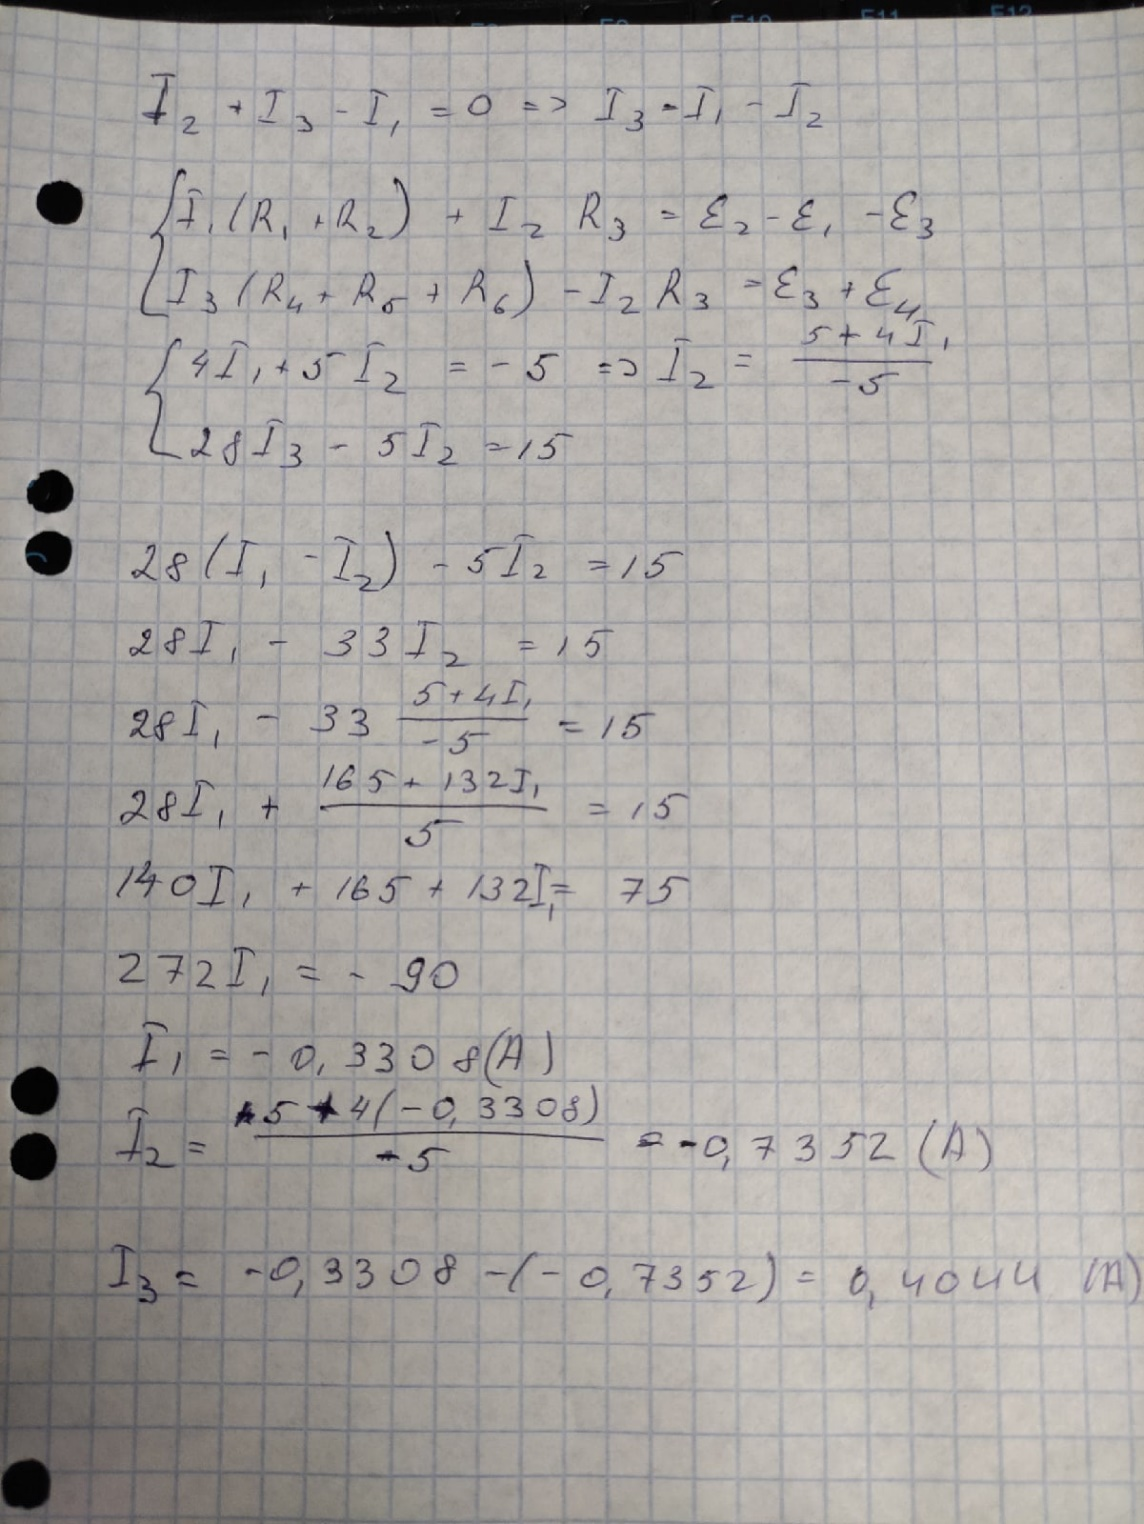 F9 F10 F11 F12
I₂ + I₃ - I₁ = 0 => I₃ = I₁ - I₂
I₁(R₁ + R₂) + I₂ R₃ = ε₂ - ε₁ - ε₃
I₃(R₄ + R₅ + R₆) - I₂ R₃ = ε₃ + ε₄
4I₁ + 5I₂ = -5 => I₂ = (5 + 4I₁)/(-5)
28I₃ - 5I₂ = 15
28(I₁ - I₂) - 5I₂ = 15
28I₁ - 33I₂ = 15
28I₁ - 33 (5 + 4I₁)/(-5) = 15
28I₁ + (165 + 132I₁)/5 = 15
140I₁ + 165 + 132I₁ = 75
272I₁ = - 90
I₁ = - 0,3308(A)
I₂ = (+5 + 4(-0,3308))/(-5) = -0,7352 (A)
I₃ = -0,3308 - (-0,7352) = 0,4044 (A)